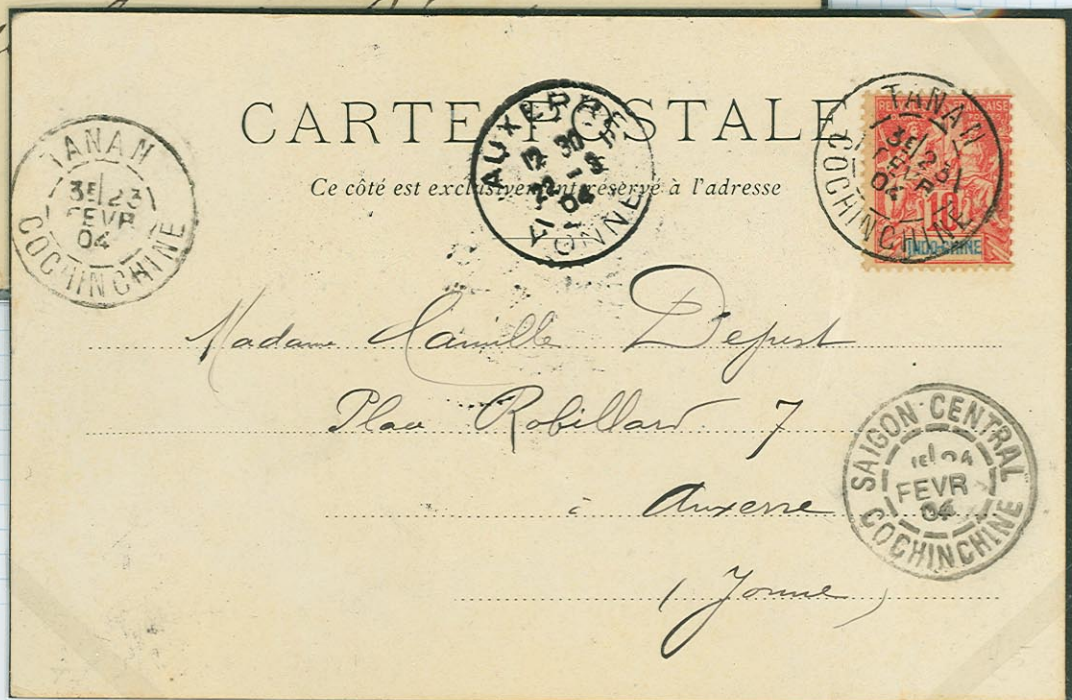 CARTE POSTALE
Ce côté est exclusivement réservé à l'adresse
TANAN
3E 23
FEVR
04
COCHINCHINE
AUXERRE
12 30
22 - 3
04
YONNE
TANAN
3E 23
FEVR
04
COCHINCHINE
REPUBLIQUE FRANCAISE
10
INDO-CHINE
Madame Camille Depest
Place Robillard 7
à Auxerre
(Yonne)
SAIGON CENTRAL
FEVR
04
COCHINCHINE